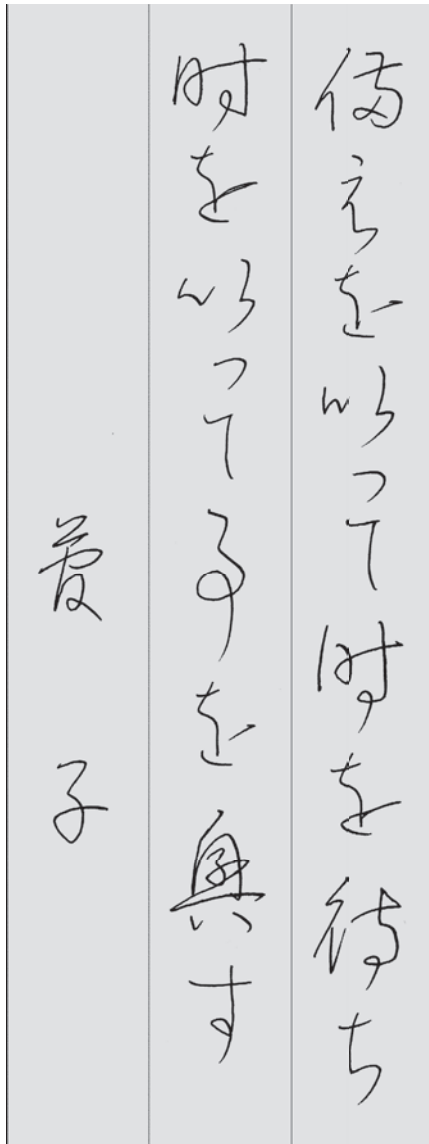 備えを以って時を待ち
時を以って事を興す
子